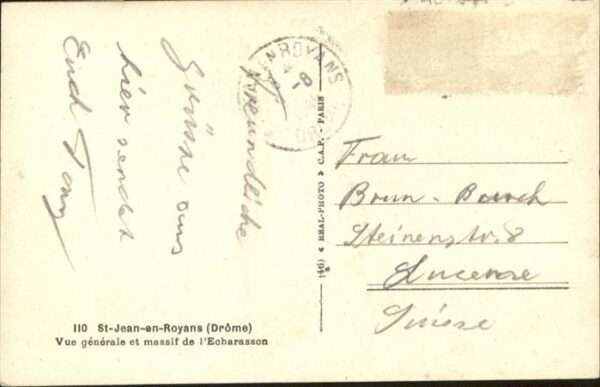 Freundliche
Grüsse aus
hier sendet
Euch Tony
ROYANS
110 St-Jean-en-Royans (Drôme)
Vue générale et massif de l'Echarasson
(46) « REAL-PHOTO » C.A.P. PARIS
Frau
Brun-
Steinenstr. 8
Lucerne
Suisse